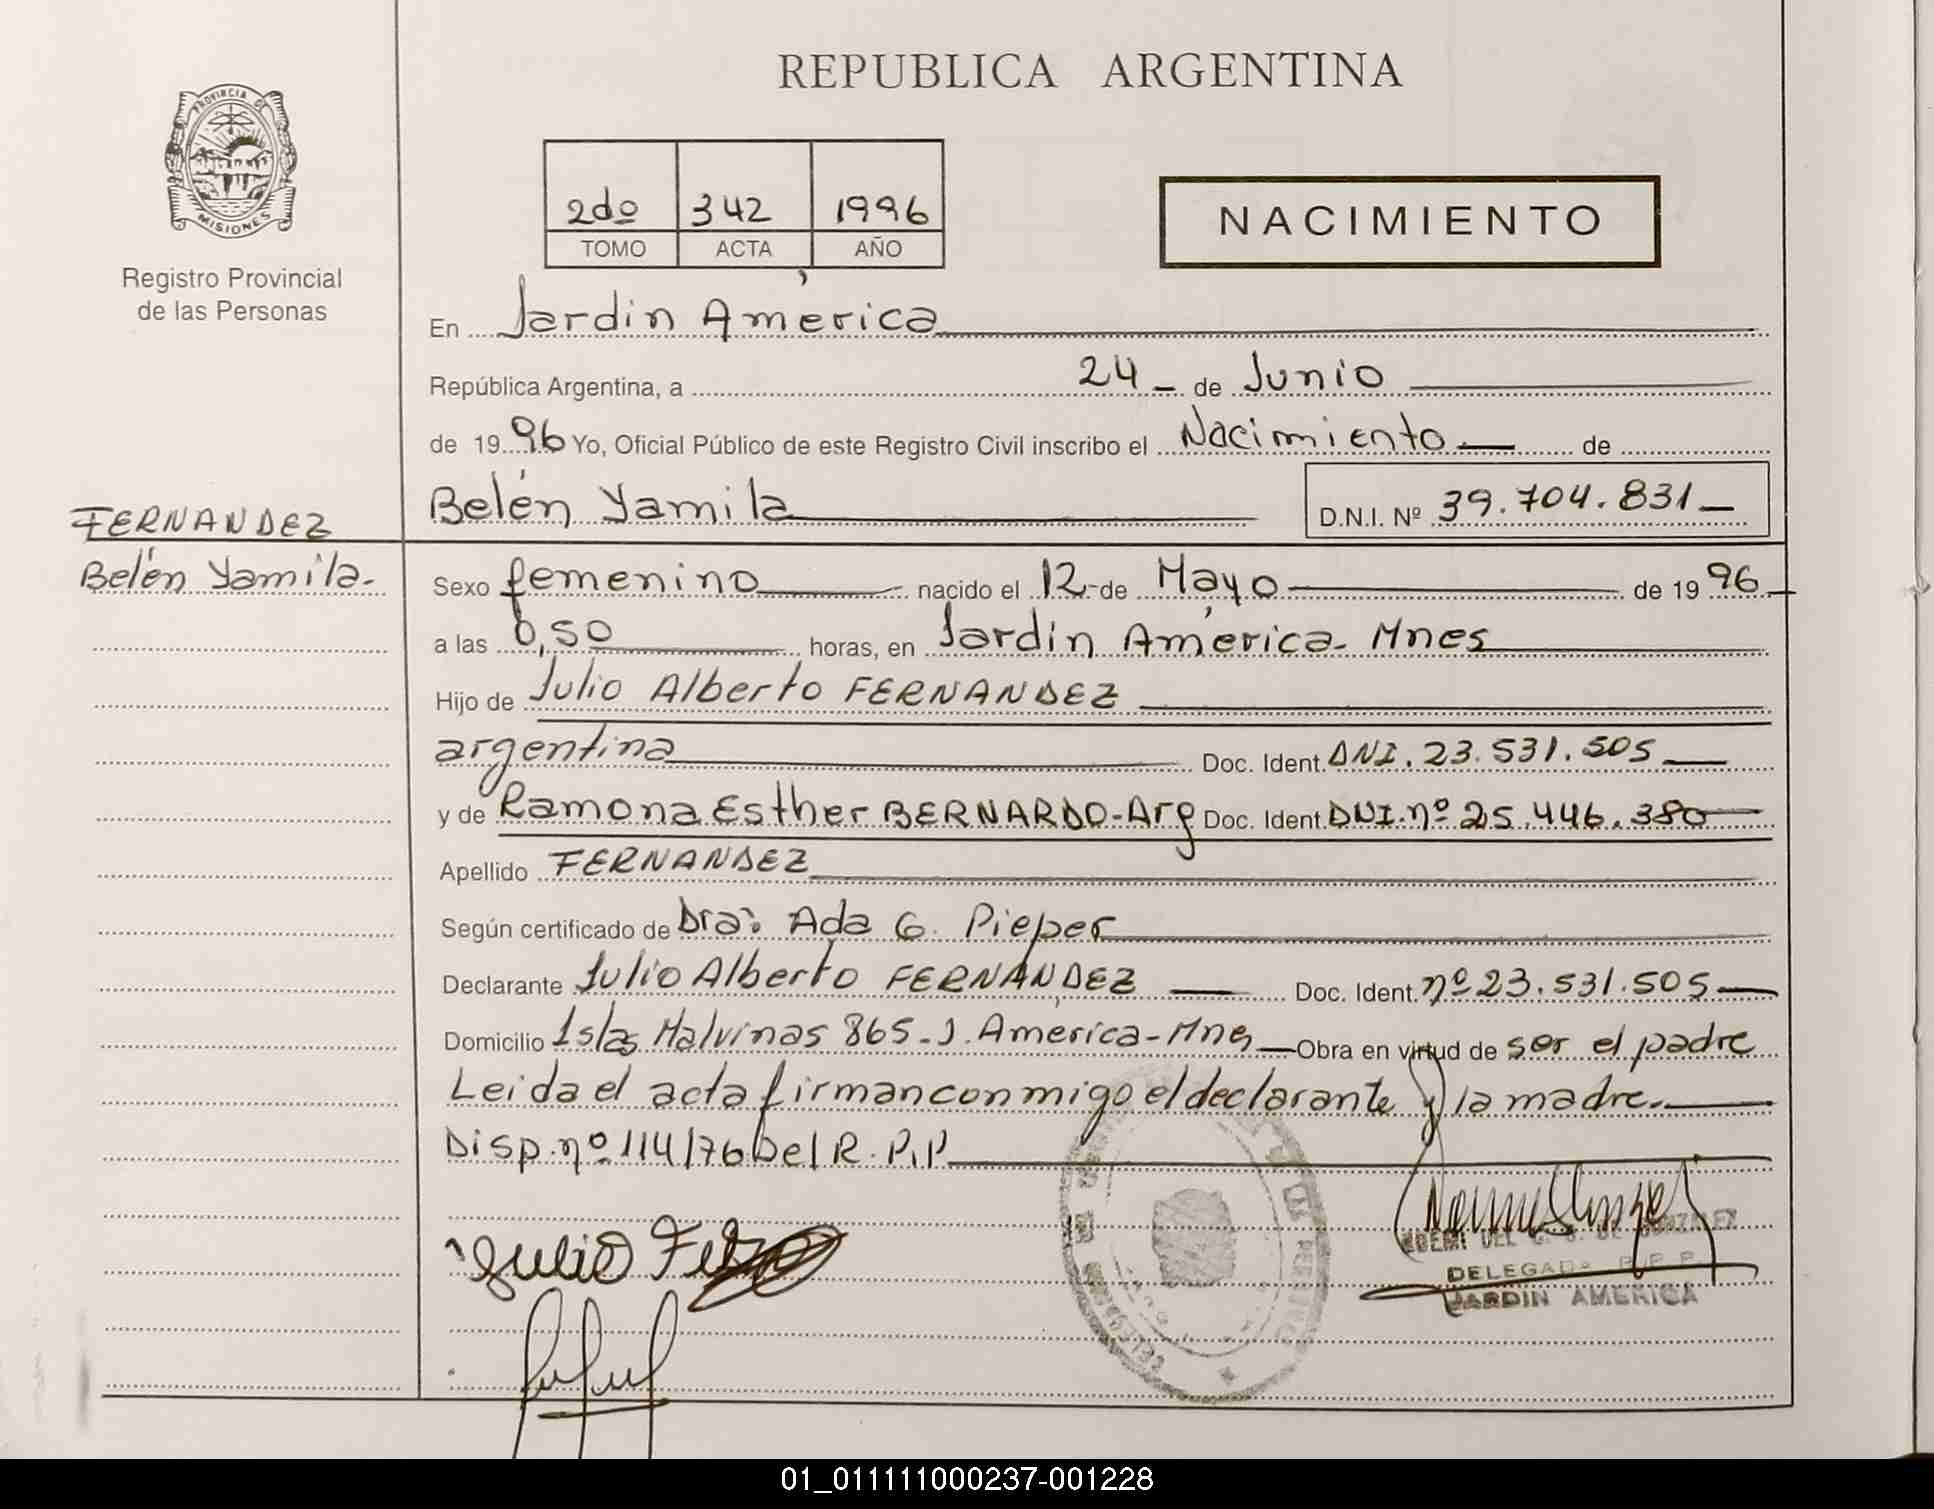 REPUBLICA ARGENTINA
PROVINCIA DE
MISIONES
Registro Provincial
de las Personas
2do 342 1996
TOMO ACTA AÑO
NACIMIENTO
En Jardín América
República Argentina, a 24 de Junio
de 1996 Yo, Oficial Público de este Registro Civil inscribo el Nacimiento de
Belén Yamila D.N.I. Nº 39.704.831
FERNANDEZ
Belén Yamila.
Sexo femenino nacido el 12 de Mayo de 1996
a las 0,50 horas, en Jardín América. Mnes
Hijo de Julio Alberto FERNANDEZ
argentina Doc. Ident. DNI. 23.531.505
y de Ramona Esther BERNARDO-Arg Doc. Ident. DNI.nº 25.446.380
Apellido FERNANDEZ
Según certificado de Dra: Ada G. Pieper
Declarante Julio Alberto FERNANDEZ Doc. Ident. nº 23.531.505
Domicilio Islas Malvinas 865-J. América-Mnes Obra en virtud de ser el padre
Leida el acta firman conmigo el declarante y la madre.
Disp. nº 114/76 Del R.P.P
Julio
DELEGADA R.P.P.
JARDIN AMERICA
01_011111000237-001228